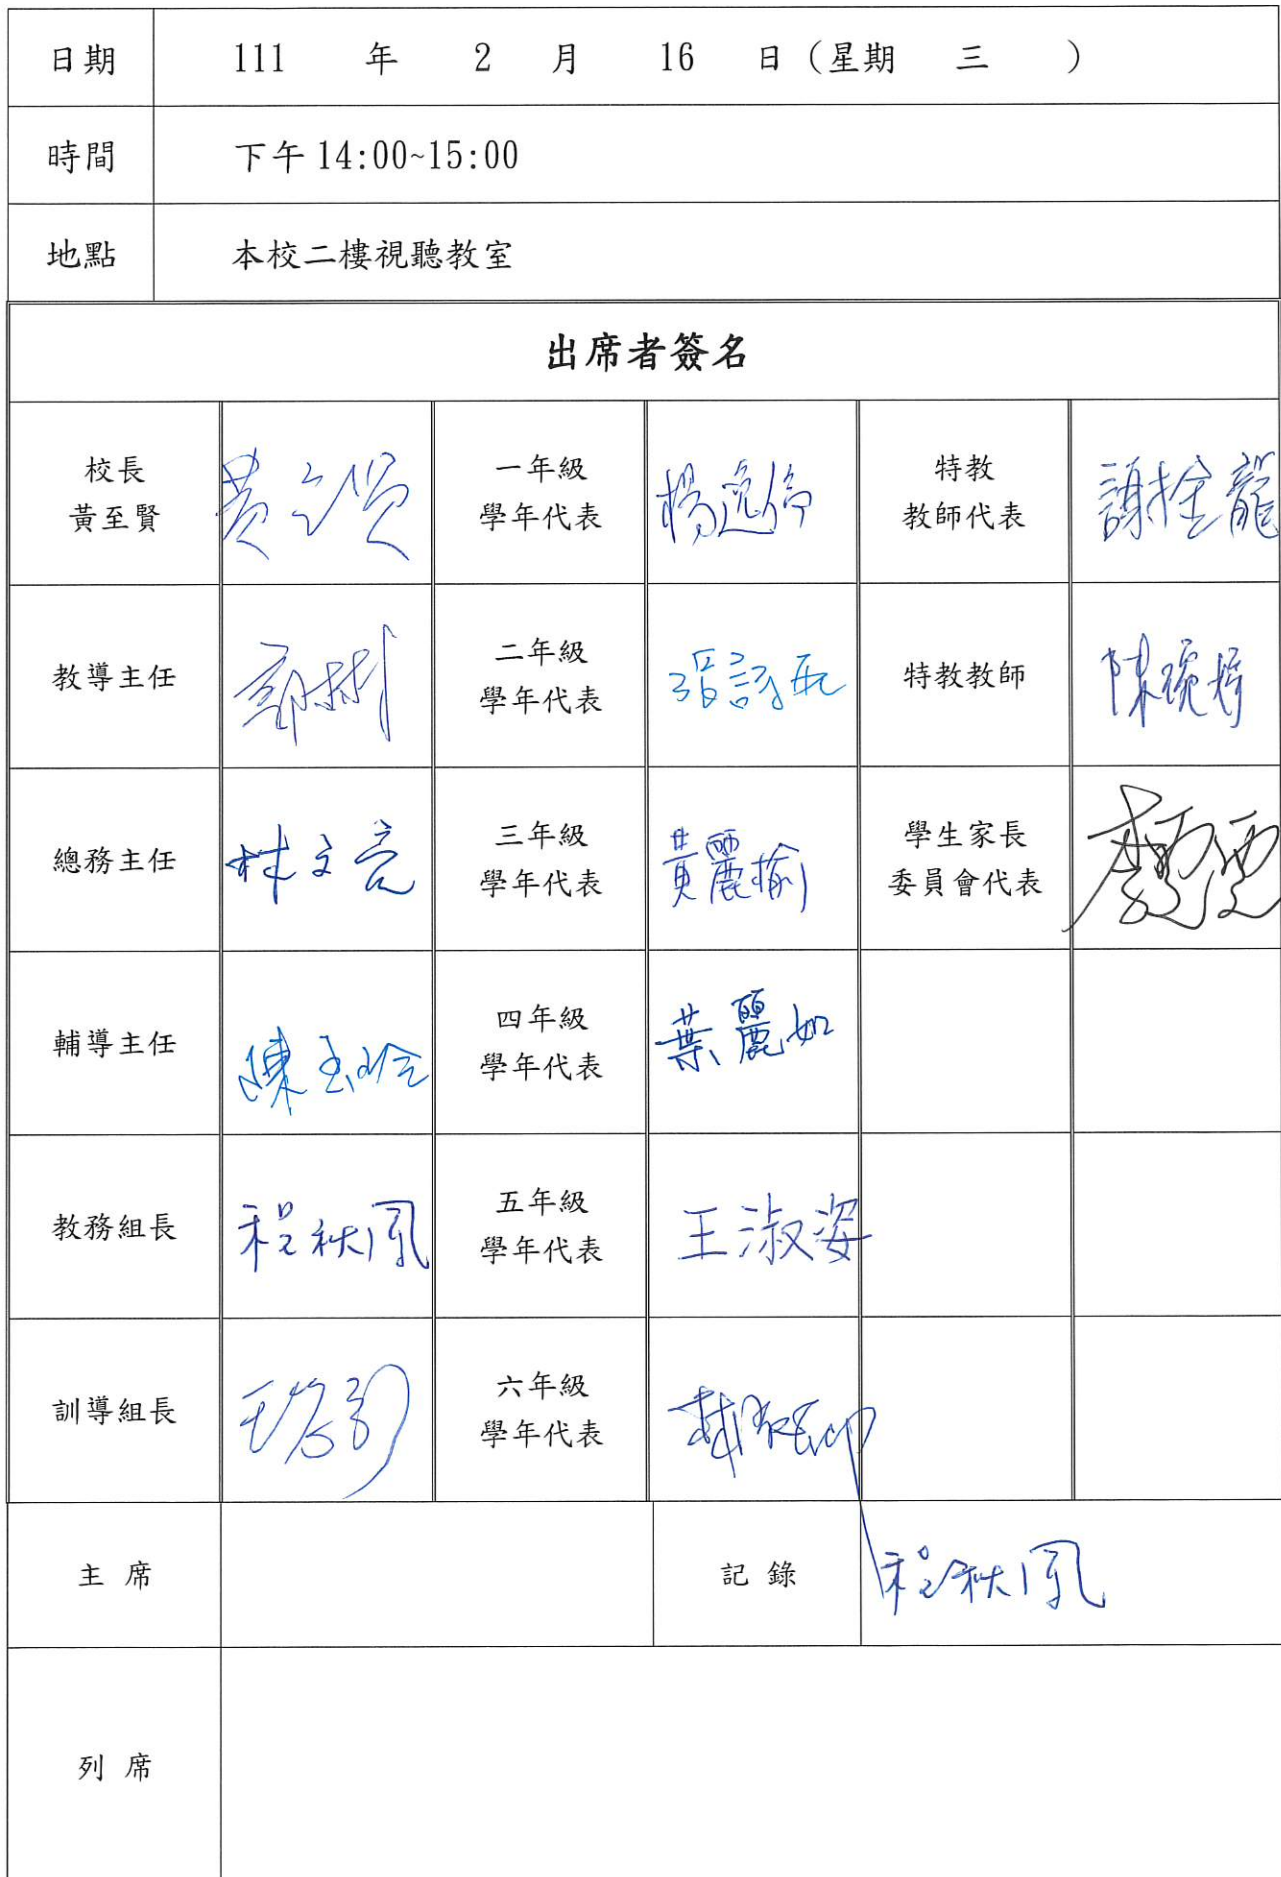 日期 111 年 2 月 16 日(星期 三 )
時間 下午 14:00~15:00
地點 本校二樓視聽教室
出席者簽名
校長
黃至賢
黃至賢
一年級
學年代表
楊逸停
特教
教師代表
謝拴龍
教導主任
二年級
學年代表
張詩
特教教師
陳琬婷
總務主任
林文亮
三年級
學年代表
黃麗揄
學生家長
委員會代表
輔導主任
陳玉玲
四年級
學年代表
葉麗如
教務組長
程秋鳳
五年級
學年代表
王淑姿
訓導組長
六年級
學年代表
主席
記錄
程秋鳳
列席